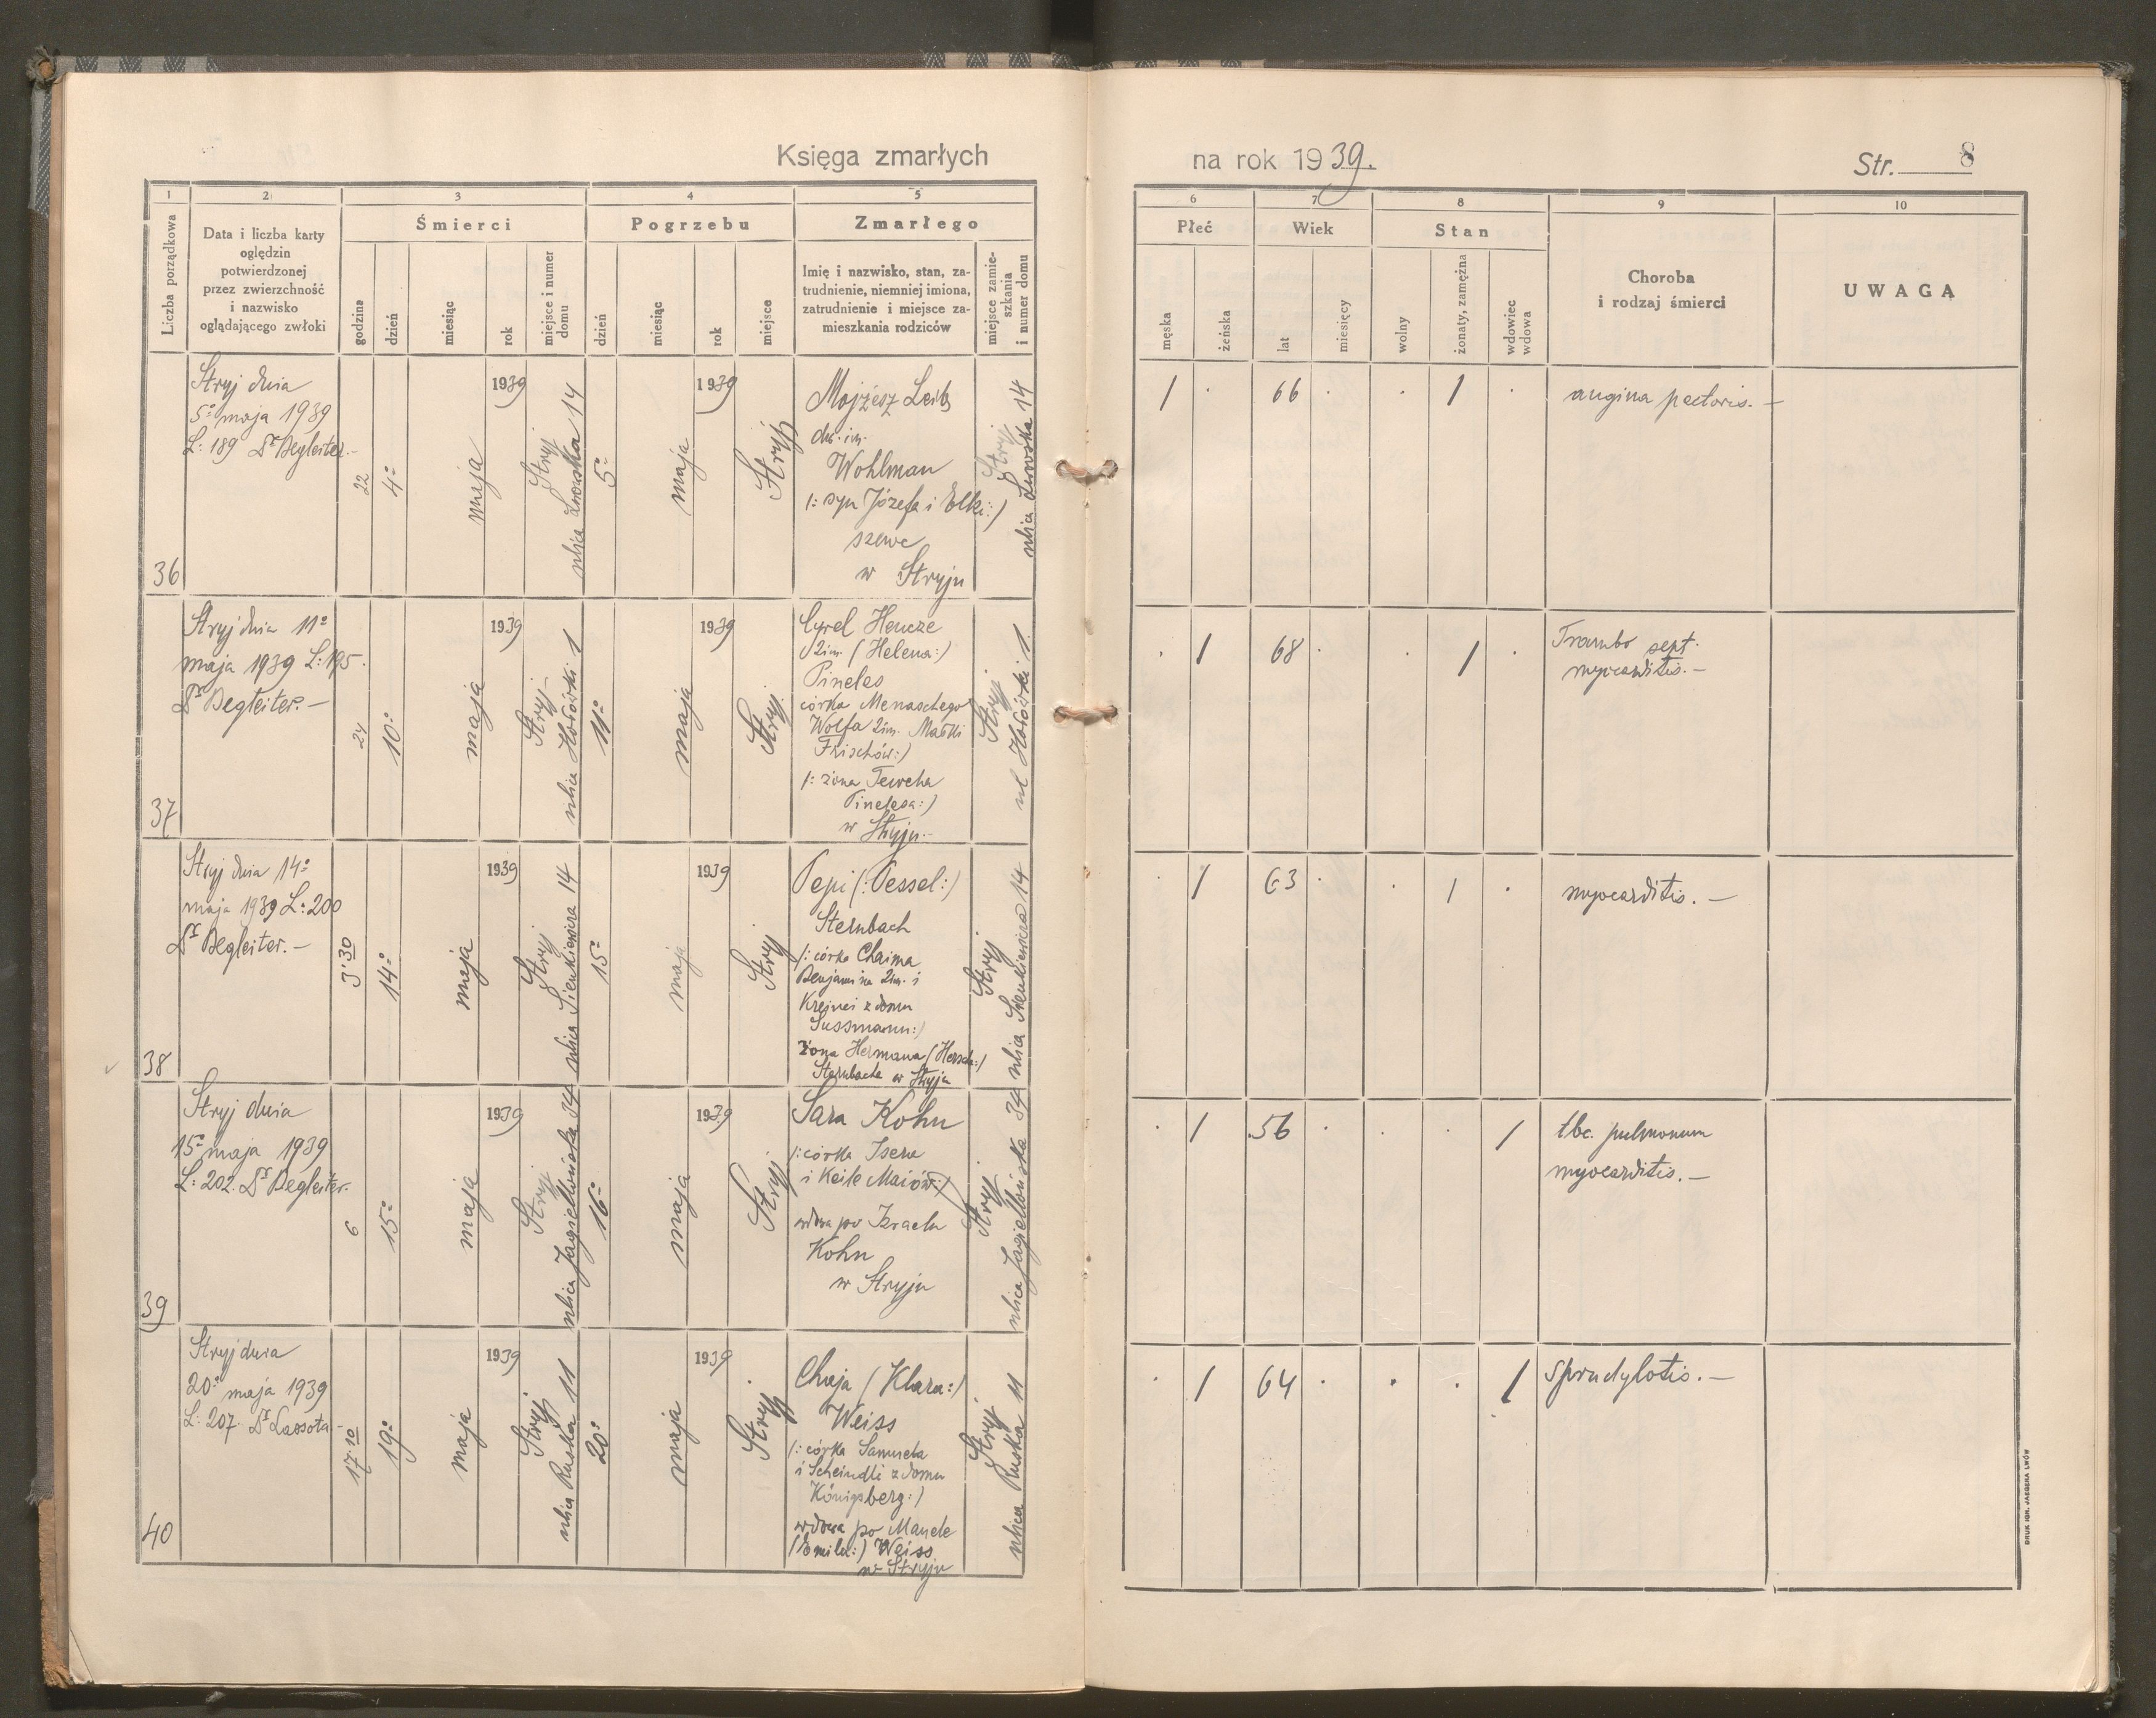 Księga zmarłych
na rok 1939.
Str. 8
1
2
3
4
5
6
7
8
9
10
Liczba porządkowa
Data i liczba karty
oględzin
potwierdzonej
przez zwierzchność
i nazwisko
oglądającego zwłoki
Śmierci
godzina
dzień
miesiąc
rok
miejsce i numer
domu
Pogrzebu
dzień
miesiąc
rok
miejsce
Zmarłego
Imię i nazwisko, stan, za-
trudnienie, niemniej imiona,
zatrudnienie i miejsce za-
mieszkania rodziców
miejsce zamie-
szkania
i numer domu
Płeć
męska
żeńska
Wiek
lat
miesięcy
Stan
wolny
żonaty, zamężna
wdowiec
wdowa
Choroba
i rodzaj śmierci
UWAGĄ
36
Stryj dnia
5º maja 1939
L: 189 Dr Begleiter.-
22
4º
maja
1939
Stryj
ulica Lwowska 14
5º
maja
1939
Stryj
Mojżesz Leib
dw. im.
Wohlman
/: syn Józefa i Elki :/
szewc
w Stryju
Stryj
ulica Lwowska 14
1
66
1
angina pectoris. –
37
Stryj dnia 11º
maja 1939 L: 195.
Dr Begleiter. –
24
10º
maja
1939
Stryj
ulica Hołówki 1
11º
maja
1939
Stryj
Cyrel Hencze
2im. (Helena:)
Pineles
córka Menaschego
Wolfa 2im. Małki
Frischów:)
/: żona Tewcha
Pinelesa:)
w Stryju.-
Stryj
ul Hołówki 1.
1
68
1
Trombo sept.
myocarditis. –
38
Stryj dnia 14º
maja 1939 L: 200
Dr Begleiter. –
3'30
14º
maja
1939
Stryj
ulica Sienkiewicza 14
15º
maja
1939
Stryj
Pepi (: Pessel:)
Sternbach
/: córka Chaima
Benjamina 2im. i
Krejnci z domu
Sussmann:)
żona Hermana (Hersch:)
Sternbacha w Stryju
Stryj
ulica Sienkiewicza 14
1
63
1
myocarditis. –
39
Stryj dnia
15º maja 1939
L: 202. Dr Begleiter.
6
15º
maja
1939
Stryj
ulica Jagiellońska 34
16º
maja
1939
Stryj
Sara Kohn
/: córka Isera
i Keile Maiów:/
wdowa po Izraelu
Kohn
w Stryju
Stryj
ulica Jagiellońska 34
1
56
1
tbc. pulmonum
myocarditis. –
40
Stryj dnia
20º maja 1939
L: 207. Dr Lassota –
17.10
19º
maja
1939
Stryj
ulica Ruska 11
20º
maja
1939
Stryj
Chaja (Klara:)
Weiss
/: córka Samuela
i Scheindli z domu
Königsberg:)
wdowa po Manele
Weiss
w Stryju
Stryj
ulica Ruska 11
1
64
1
Sprudylotis. –
DRUK IGN. JAEGERA LWÓW